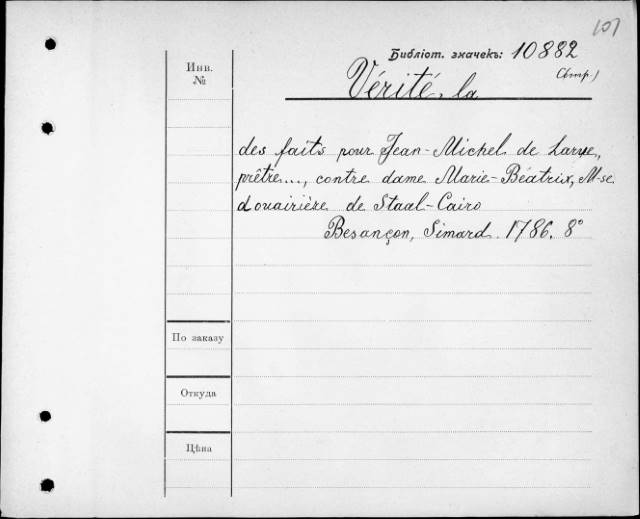 107
Библіот. значекъ: 10882
(Imp.)
Инв.
№
Vérité, la
des faits pour Jean-Michel de Larye,
prêtre..., contre dame Marie-Béatrix, M-se
douairière de Staal-Cairo
Besançon, Simard. 1786. 8°
По заказу
Откуда
Цѣна